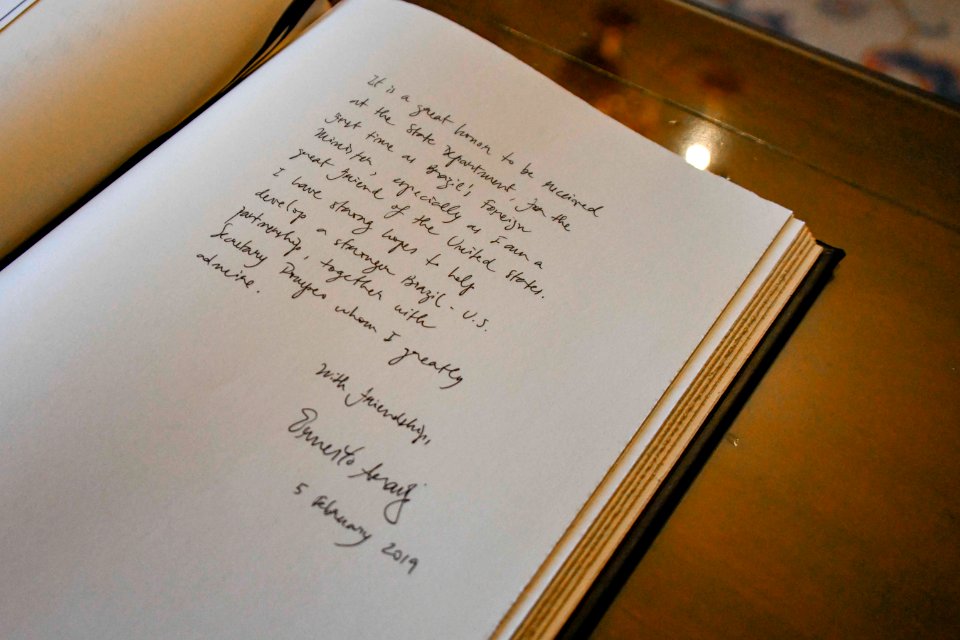 It is a great honor to be received
at the State Department, for the
first time as Brazil's Foreign
Minister, especially as I am a
great friend of the United States.
I have strong hopes to help
develop a stronger Brazil - U.S.
partnership, together with
Secretary Pompeo whom I greatly
admire.
With friendship,
Ernesto Araújo
5 February 2019